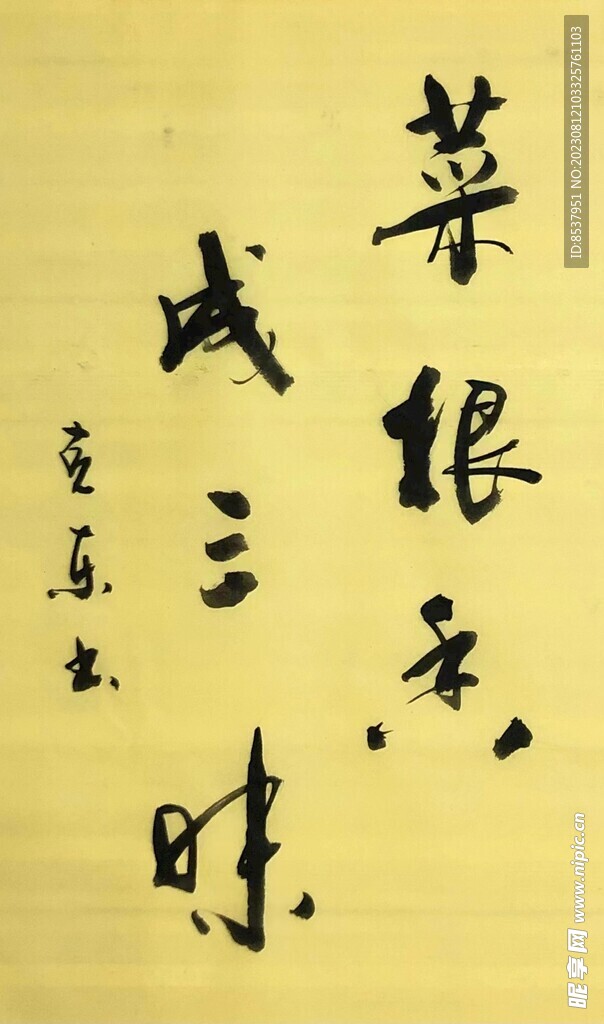 菜根香
成三昧
克东书
ID:8537951 NO:20230812103325761103
昵享网 www.nipic.cn